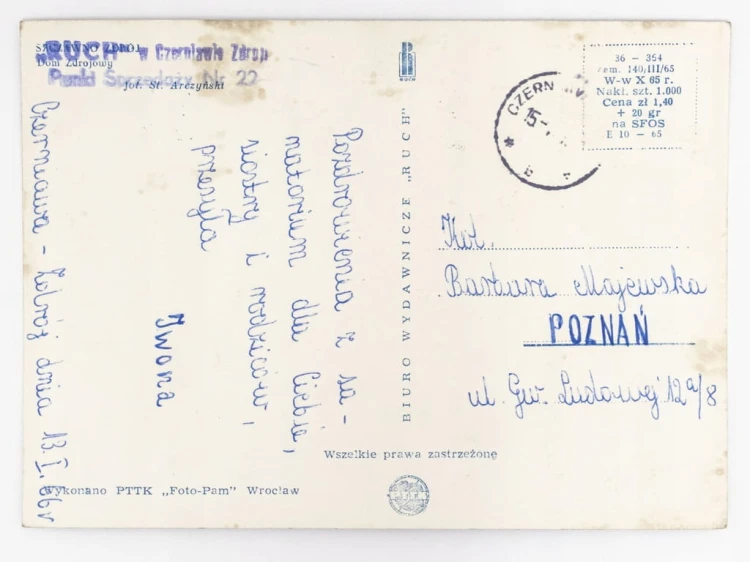 SZCZAWNO ZDRÓJ
Dom Zdrojowy
fot. St. Arczyński
„RUCH" w Czerniawie Zdroju
Punkt Sprzedaży Nr 22
Czerniawa - Zdrój dnia 13.I.66r
Pozdrowienia z sa-
natorium dla Ciebie,
siostry i rodziców,
przesyła
Iwona
RUCH
BIURO WYDAWNICZE „RUCH"
CZERN
36 - 364
zam. 140/III/65
W-w X 65 r.
Nakł. szt. 1.000
Cena zł 1,40
+ 20 gr
na SFOS
E 10 - 65
Kol.
Barbara Majewska
POZNAŃ
ul. Gw. Ludowej 12a/8
Wszelkie prawa zastrzeżone
Wykonano PTTK „Foto-Pam" Wrocław
PTTK